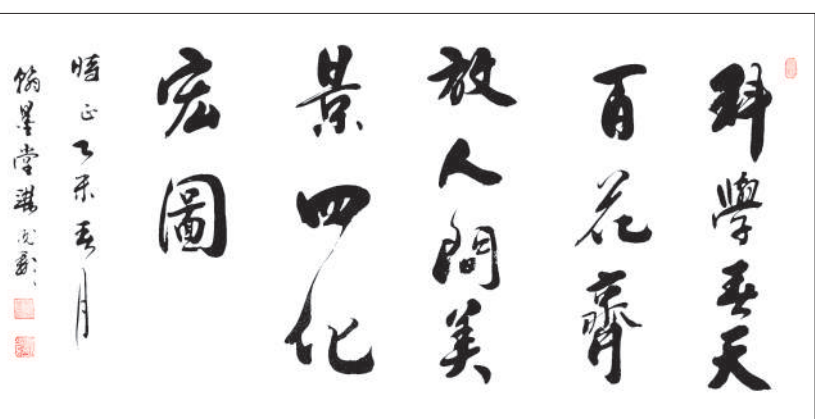 科學春天
百花齊
放人間美
景四化
宏圖
時正乙未春月
翰墨堂